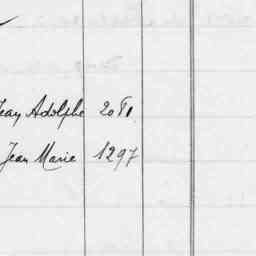 Jean Adolphe 2080
Jean Marie 1297